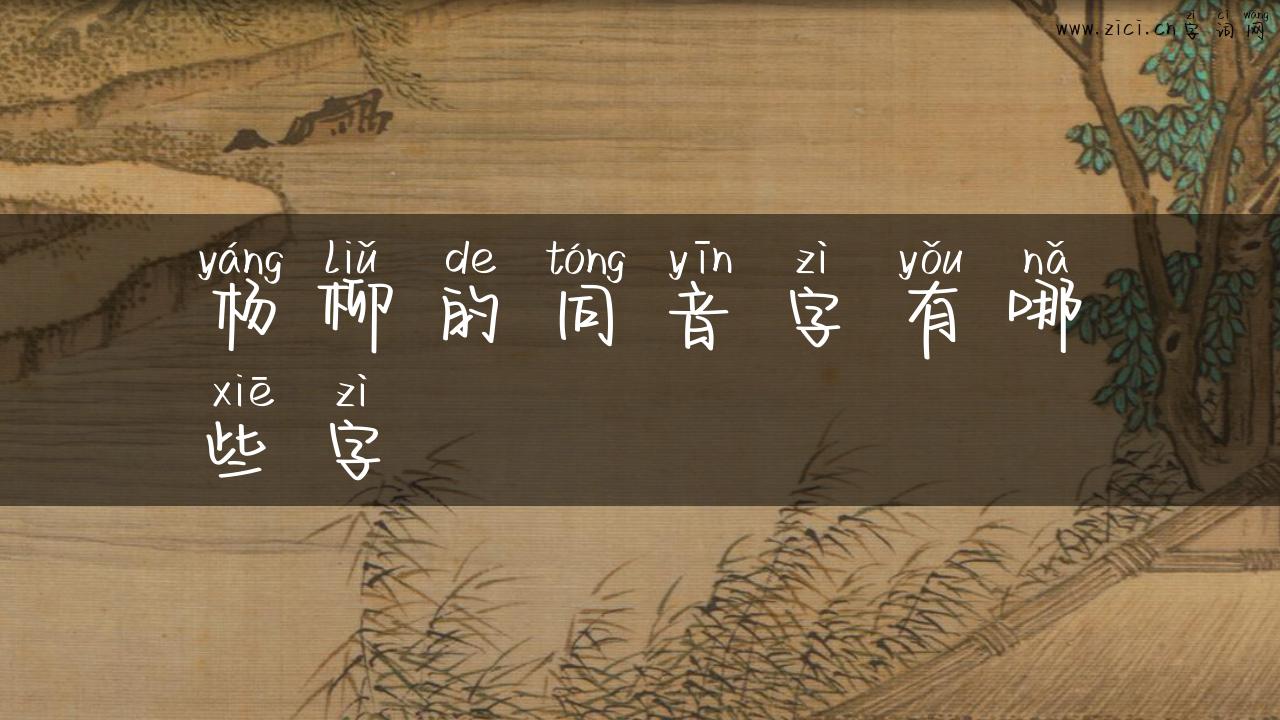 zì cí wǎng
www.zici.cn 字 词 网
yáng liǔ de tóng yīn zì yǒu nǎ
杨 柳 的 同 音 字 有 哪
xiē zì
些 字